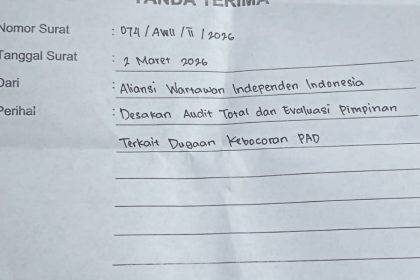 TANDA TERIMA
Nomor Surat : 074 / AWII / II / 2026
Tanggal Surat : 2 Maret 2026
Dari : Aliansi Wartawan Independen Indonesia
Perihal : Desakan Audit Total dan Evaluasi Pimpinan
Terkait Dugaan Kebocoran PAD